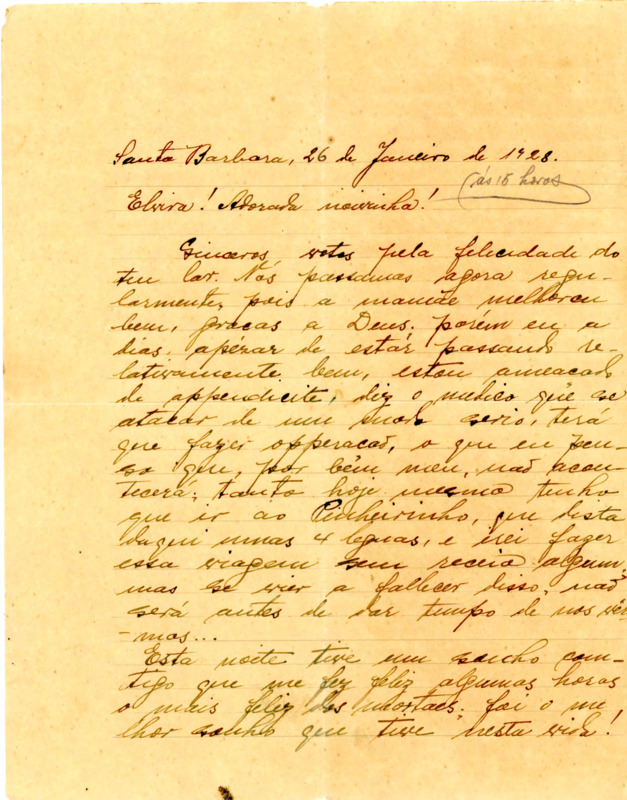 Santa Barbara, 26 de Janeiro de 1928.
(ás 15 horas)
Elvira! Adorada noivinha!
Sinceros votos pela felicidade do
teu lar. Nós passamos agora regu-
larmente, pois a mamãe melhorou
bem, graças a Deus; porém eu a
dias, apézar de estár passando re-
lativamente bem, estou ameaçado
de appendicite, diz o medico que se
atacar de um modo serio, terá
que fazer opperacaõ, o que eu pen-
so que, por bêm meu, naõ acon-
tecerá; tanto hoje mesmo tenho
que ir ao Pinheirinho, que dista
daqui umas 4 leguas, e irei fazer
essa viagem sem receio algum,
mas se vier a fallecer disso, naõ
será antes de dar tempo de nos vêr-
-mos...
Esta noite tive um sonho com-
tigo que me fez feliz algumas horas
o mais feliz dos mortaes; foi o me
lhor sonho que tive nesta vida!